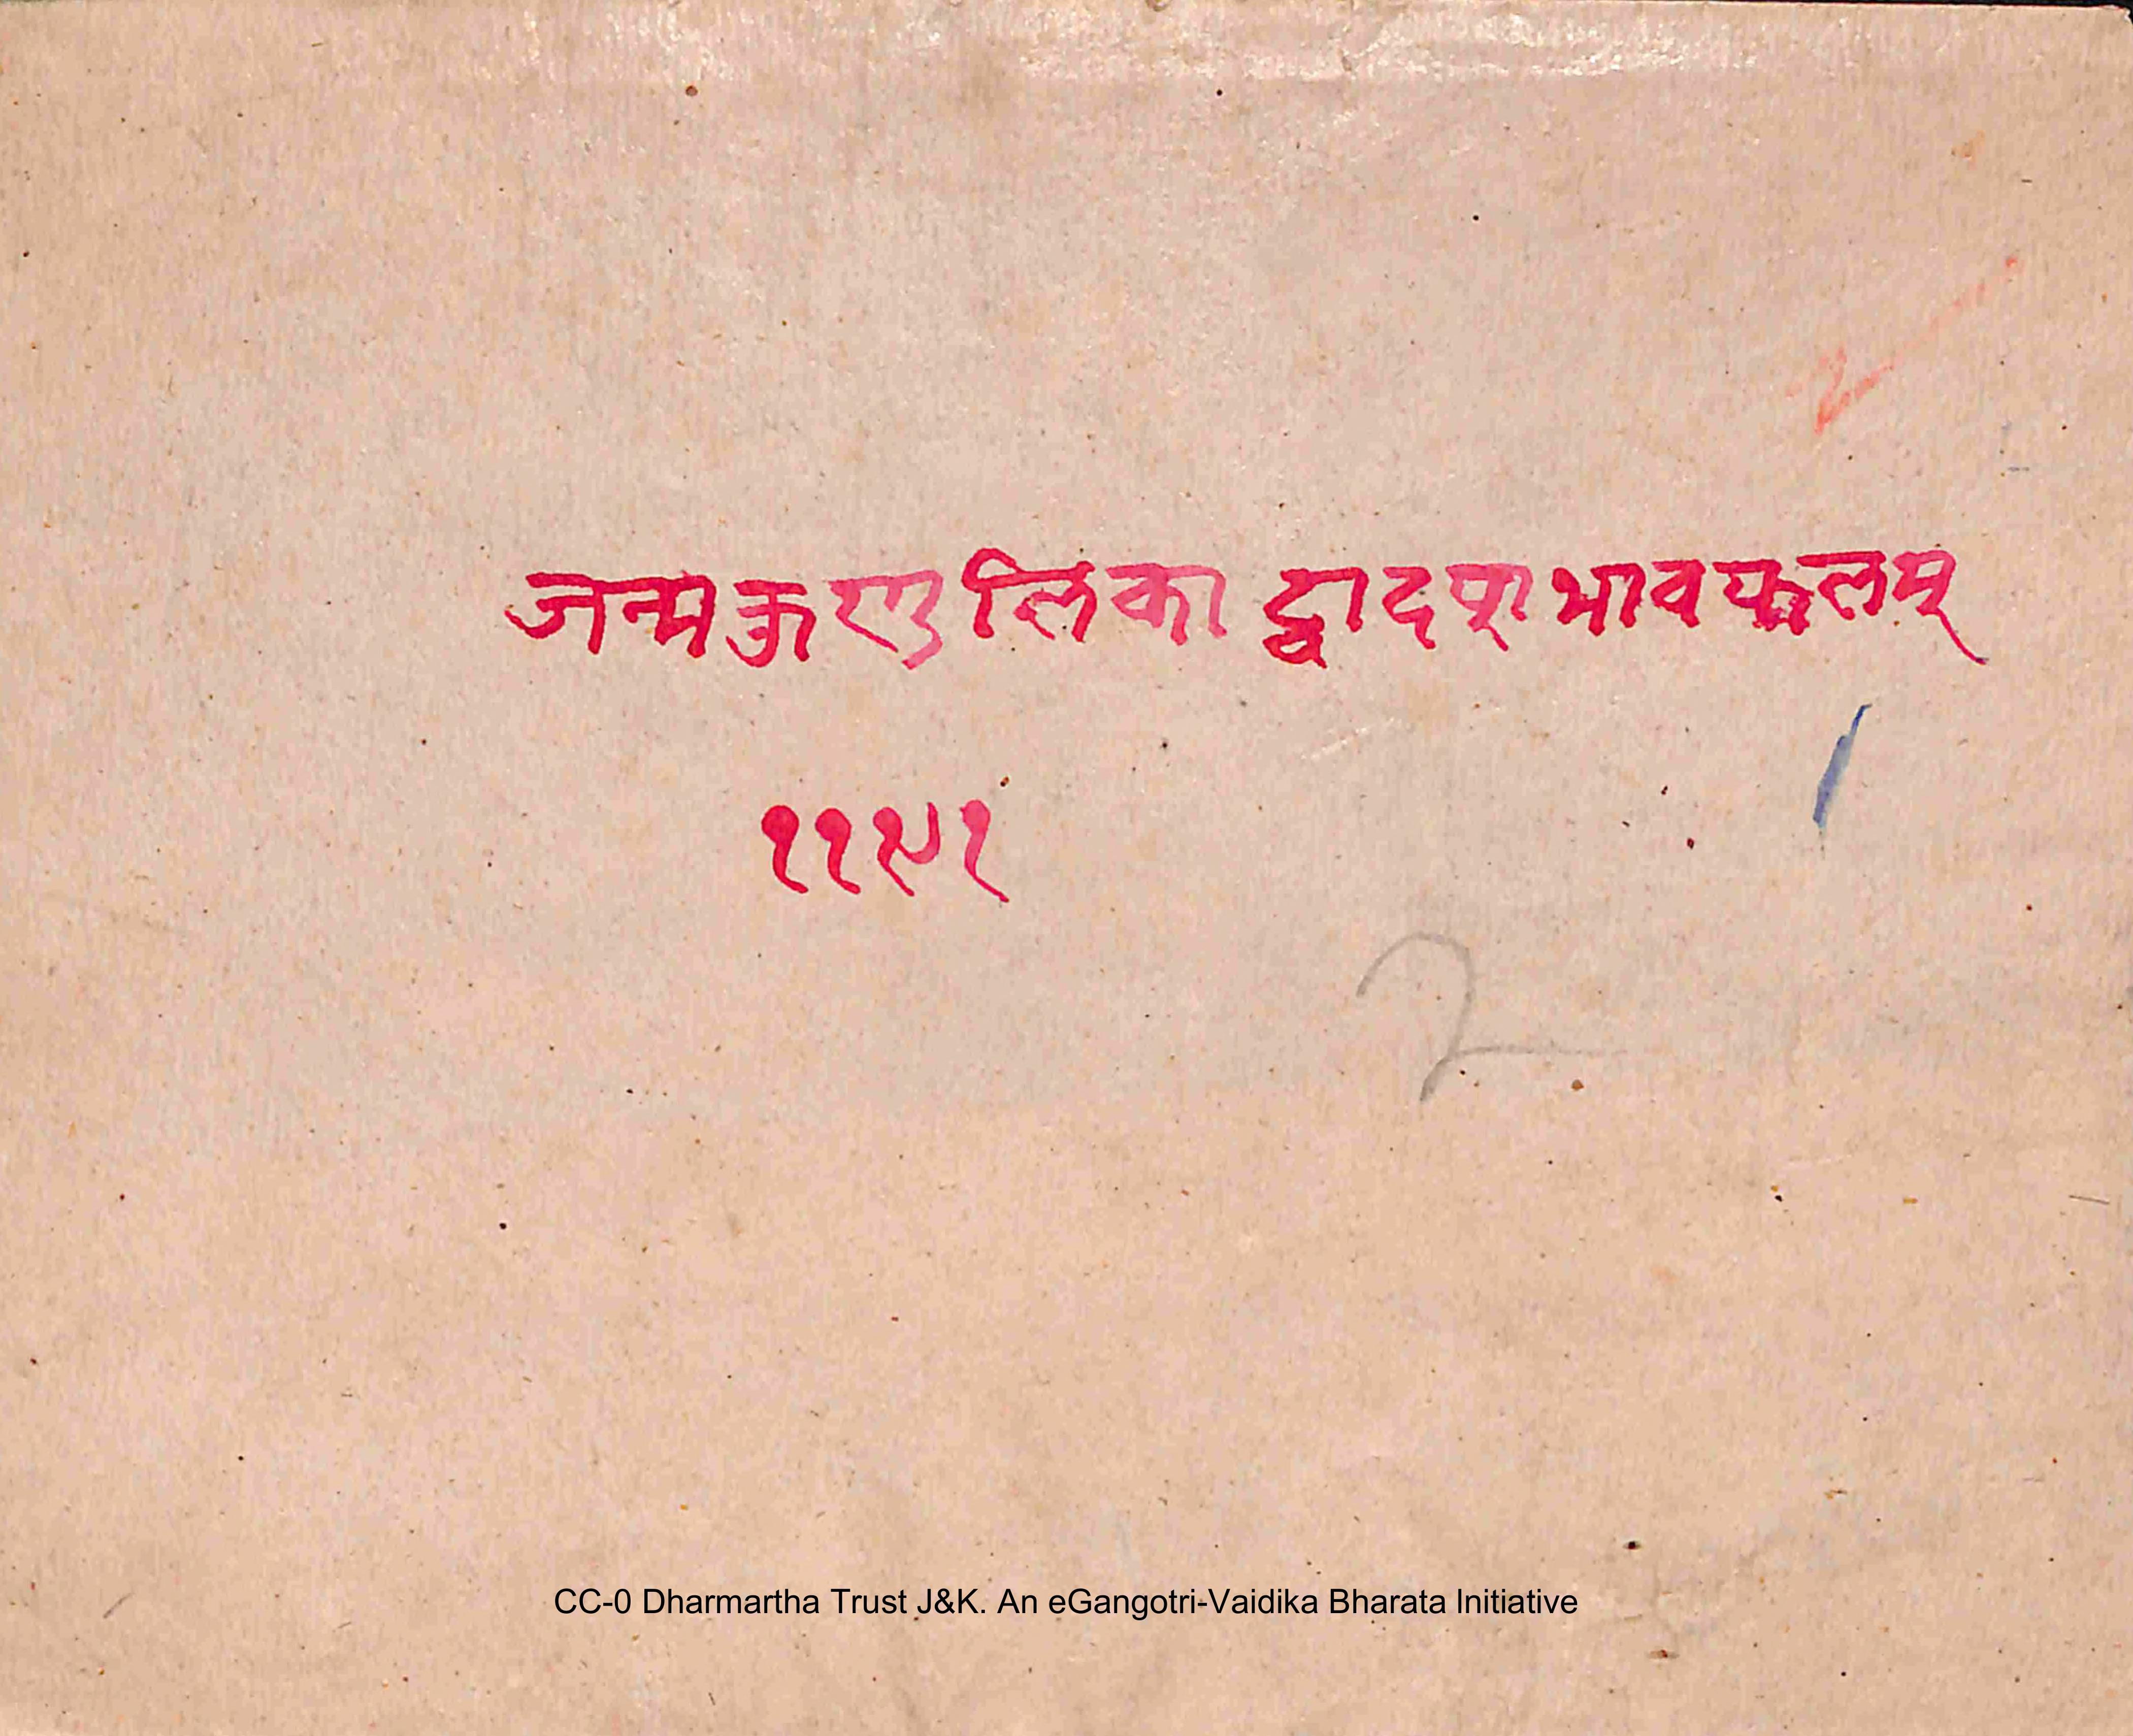 जन्मकुण्डलिका द्वादशभावफलम्
११५१
2
CC-0 Dharmartha Trust J&K. An eGangotri-Vaidika Bharata Initiative